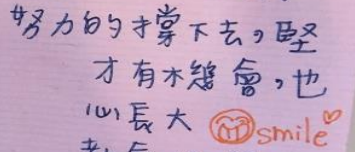 努力的撐下去，堅
才有機會，也
心長大 smile